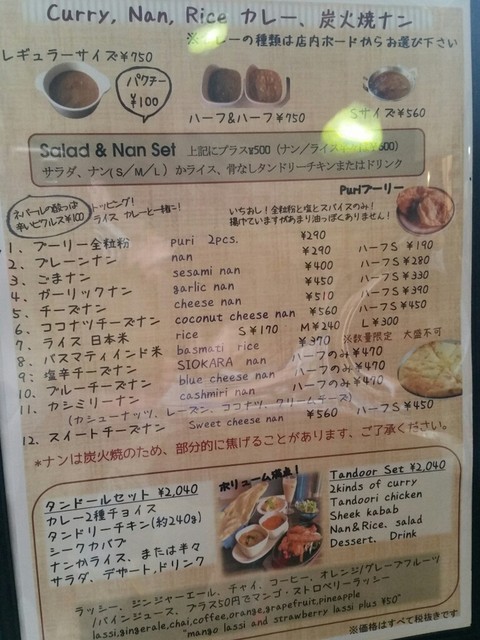 Curry, Nan, Rice カレー、炭火焼ナン
※カレーの種類は店内ボードからお選び下さい
レギュラーサイズ¥750
パクチー
¥100
ハーフ&ハーフ¥750
Sサイズ¥560
Salad & Nan Set 上記にプラス¥500（ナン／ライス
サラダ、ナン(S/M/L) かライス、骨なしタンドリーチキンまたはドリンク
Puriプーリー
ネパールの酸っぱ
辛いピクルス¥100
トッピング!
ライス カレーと一緒に!
いちおし!全粒粉と塩とスパイスのみ!
揚げていますがあまり油っぽくありません!
1、プーリー全粒粉 puri 2pcs. ¥290
2、プレーンナン nan ¥290 ハーフS ¥190
3、ごまナン sesami nan ¥400 ハーフS ¥280
4、ガーリックナン garlic nan ¥450 ハーフS ¥330
5、チーズナン cheese nan ¥510 ハーフS ¥390
6、ココナツチーズナン coconut cheese nan ¥560 ハーフS ¥450
7、ライス 日本米 rice S¥170 M¥240 L¥300
8、バスマティインド米 basmati rice ¥370 ※数量限定 大盛不可
9、塩辛チーズナン SIOKARA nan ハーフのみ¥470
10、ブルーチーズナン blue cheese nan ハーフのみ¥470
11、カシミリーナン cashmiri nan ハーフのみ¥470
(カシューナッツ、レーズン、ココナツ、クリームチーズ)
12、スイートチーズナン Sweet cheese nan ¥560 ハーフS ¥450
*ナンは炭火焼のため、部分的に焦げることがあります、ご了承ください。
タンドールセット ¥2,040
カレー2種チョイス
タンドリーチキン(約240g)
シークカバブ
ナンかライス、または半々
サラダ、デザート,ドリンク
ボリューム満点!
Tandoor Set ¥2,040
2kinds of curry
Tandoori chicken
Sheek kabab
Nan&Rice. salad
Dessert、 Drink
ラッシー、ジンジャーエール、チャイ、コーヒー、オレンジ/グレープフルーツ
/パインジュース、プラス50円でマンゴ・ストロベリーラッシー
lassi,gingerale,chai,coffee,orange,grapefruit,pineapple
"mango lassi and strawberry lassi plus ¥50"
※価格はすべて税抜きです